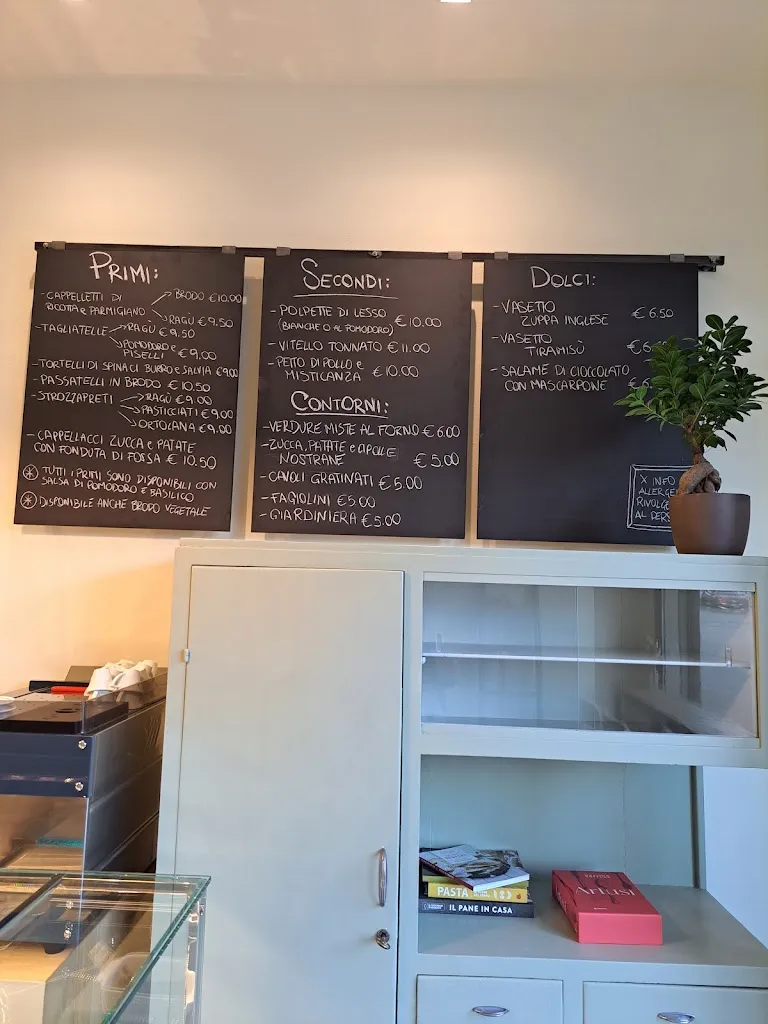 PRIMI:
- CAPPELLETTI DI RICOTTA e PARMIGIANO
BRODO € 10.00
RAGÙ € 9.50
- TAGLIATELLE
RAGÙ € 9.50
POMODORO e PISELLI € 9,00
- TORTELLI DI SPINACI BURRO e SALVIA €9.00
- PASSATELLI IN BRODO € 10.50
- STROZZAPRETI
RAGÙ € 9.00
PASTICCIATI € 9.00
ORTOLANA € 9.00
- CAPPELLACCI ZUCCA e PATATE
CON FONDUTA DI FOSSA € 10.50
* TUTTI I PRIMI SONO DISPONIBILI CON
SALSA DI POMODORO E BASILICO
* DISPONIBILE ANCHE BRODO VEGETALE
SECONDI:
- POLPETTE DI LESSO € 10.00
(BIANCHE O AL POMODORO)
- VITELLO TONNATO € 11.00
- PETTO DI POLLO e
MISTICANZA € 10.00
CONTORNI:
- VERDURE MISTE AL FORNO € 6.00
- ZUCCA, PATATE e CIPOLLE
NOSTRANE € 5.00
- CAVOLI GRATINATI € 5.00
- FAGIOLINI € 5.00
- GIARDINIERA € 5.00
DOLCI:
- VASETTO
ZUPPA INGLESE € 6.50
- VASETTO
TIRAMISÙ
- SALAME DI CIOCCOLATO
CON MASCARPONE
X INFO
AL
PASTA
IL PANE IN CASA
Artusi